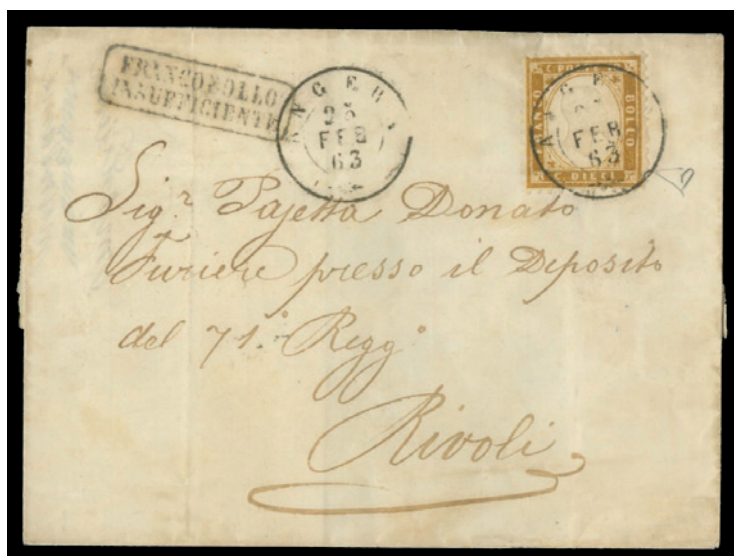 FRANCOBOLLO
INSUFFICIENTE
ANGERA
25
FEB
63
C. POSTE
FRANCO
BOLLO
C. DIECI
FEB
63
Sig.r Pajetta Donato
Furiere presso il Deposito
del 71.° Regg.°
Rivoli